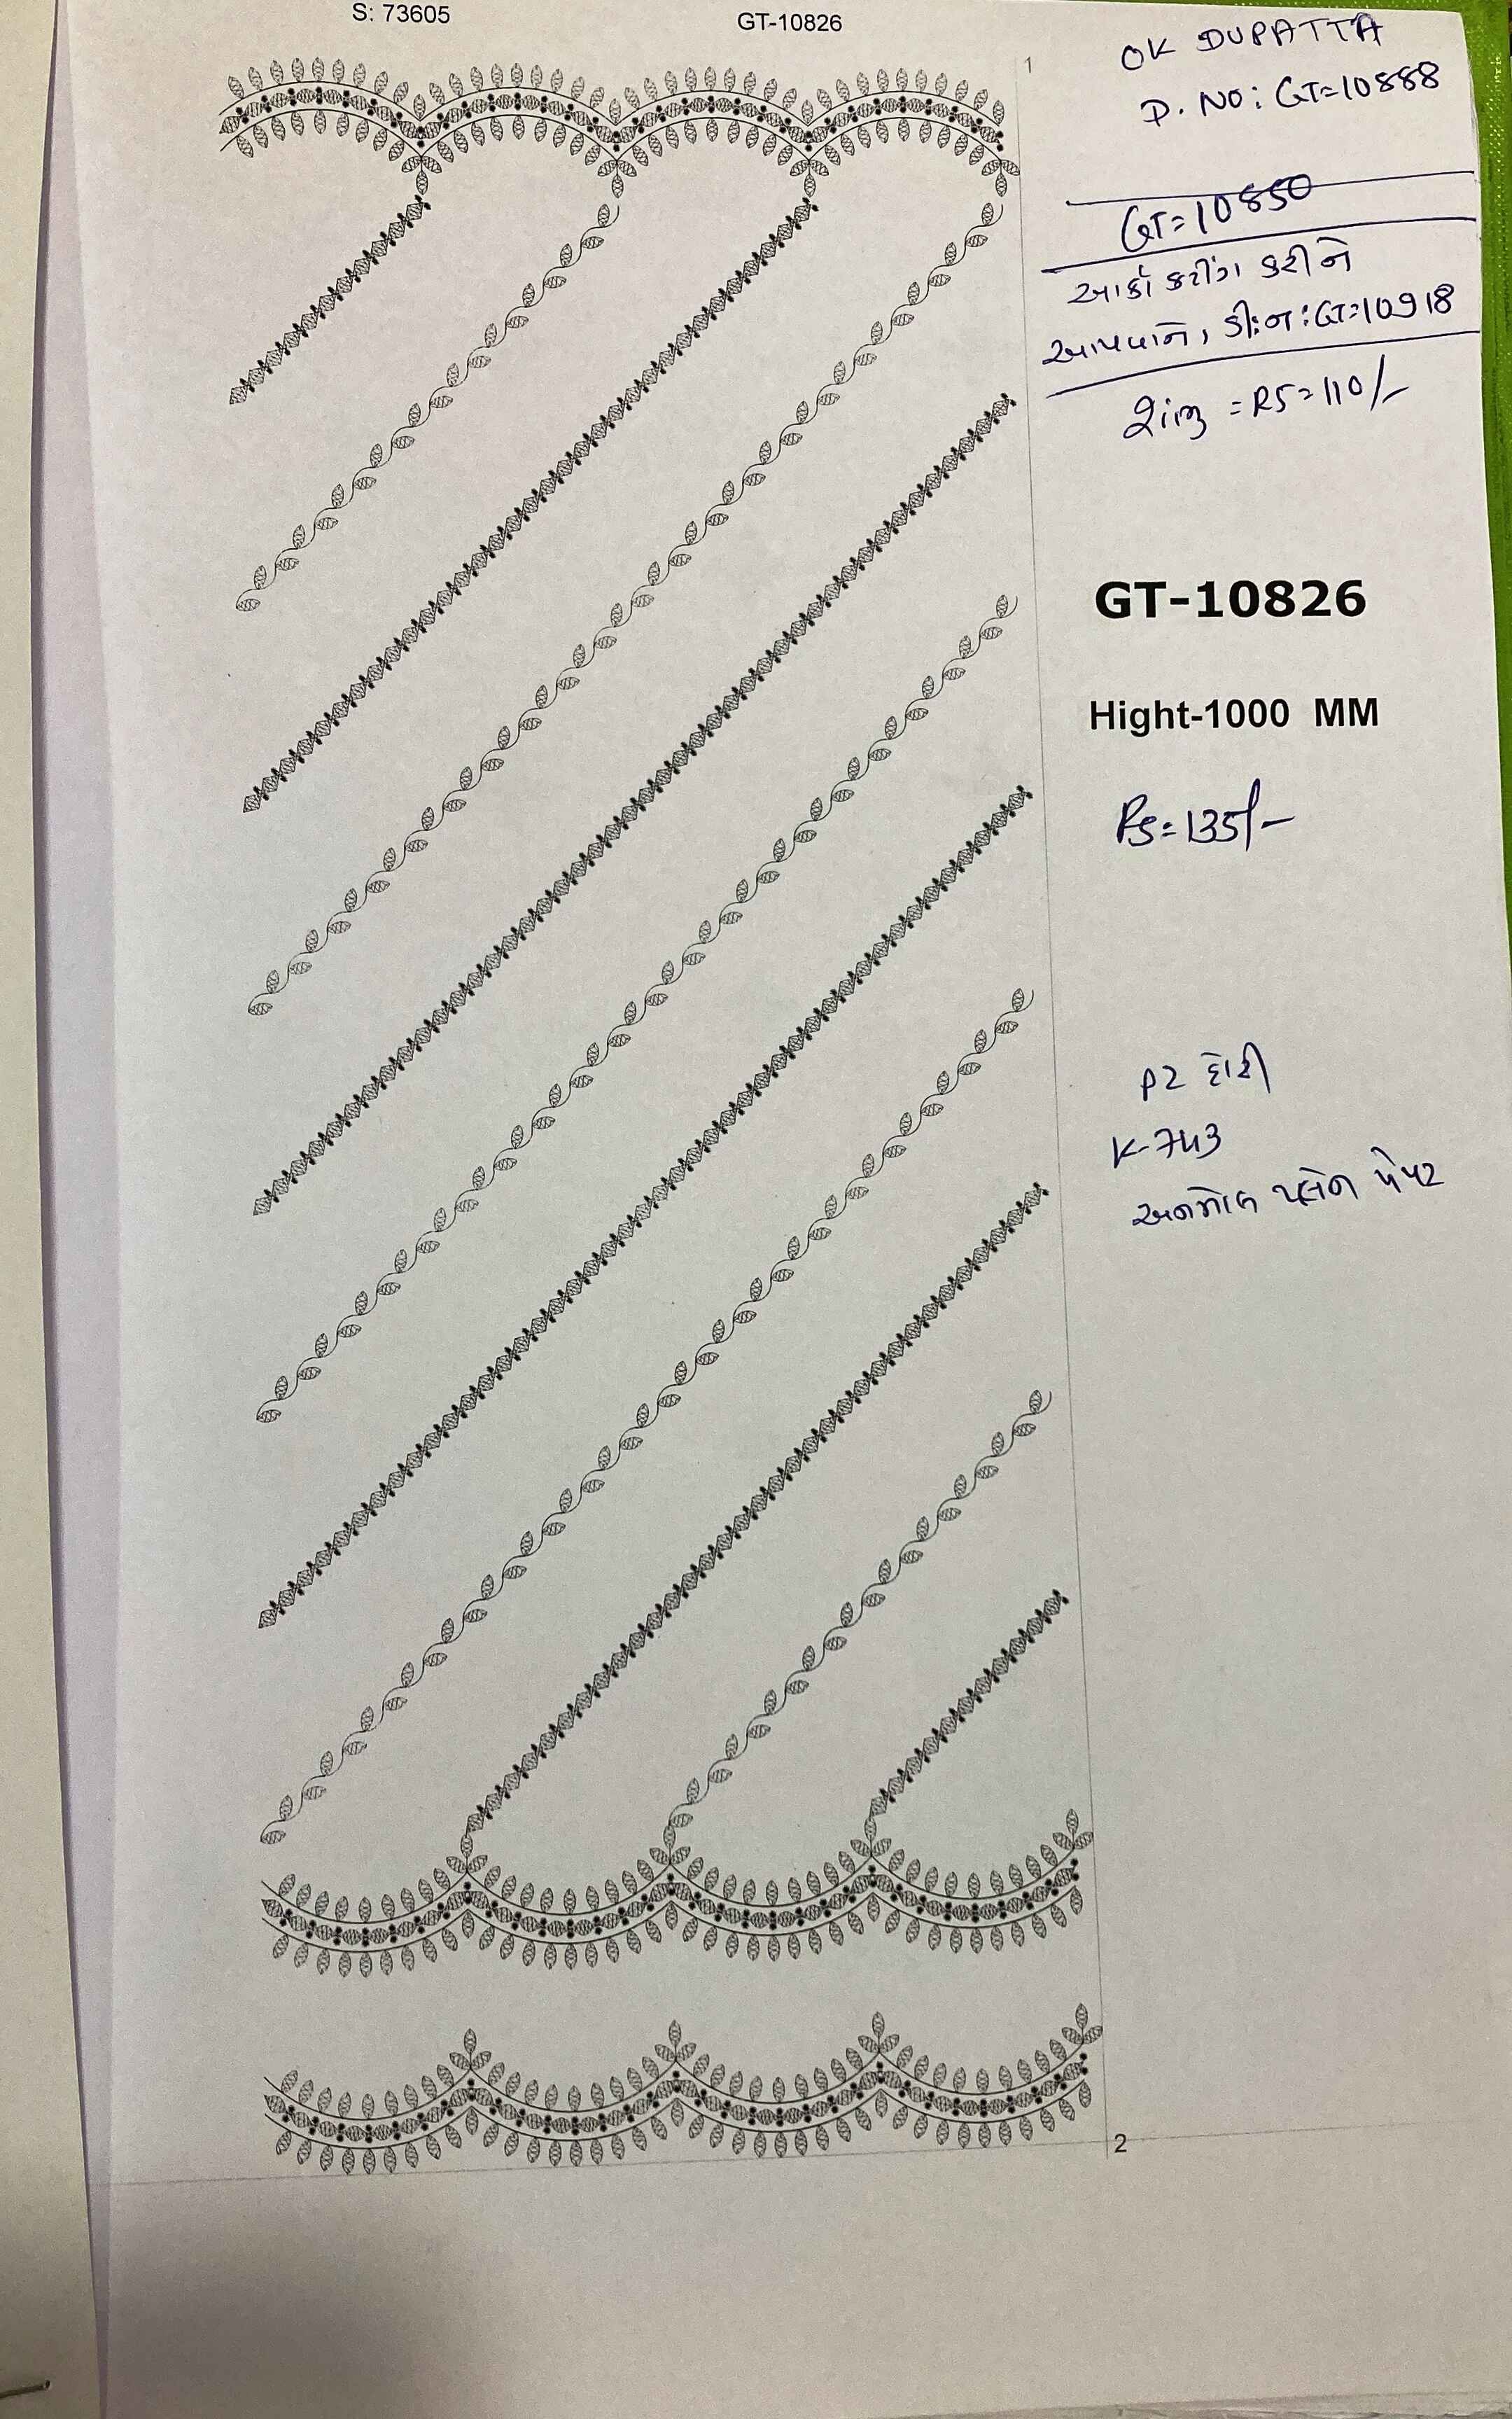 S: 73605
GT-10826
1
OK DUPATTA
D. NO: GT=10888
GT=10850
કરીને
GT=10918
=RS=110/-
GT-10826
Hight-1000 MM
RS=135/-
P2 દોરી
K-743
અનમોલ પ્લેન પેપર
2